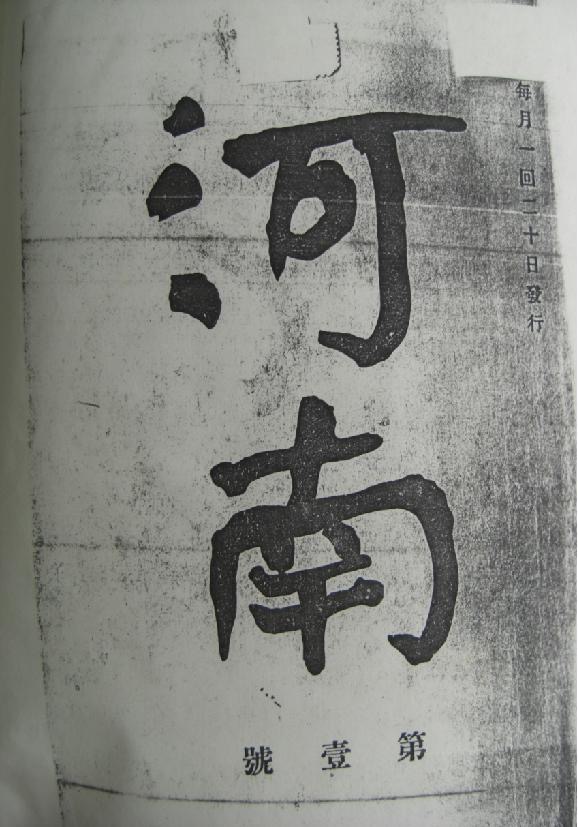 每月一回二十日發行
河南
第壹號